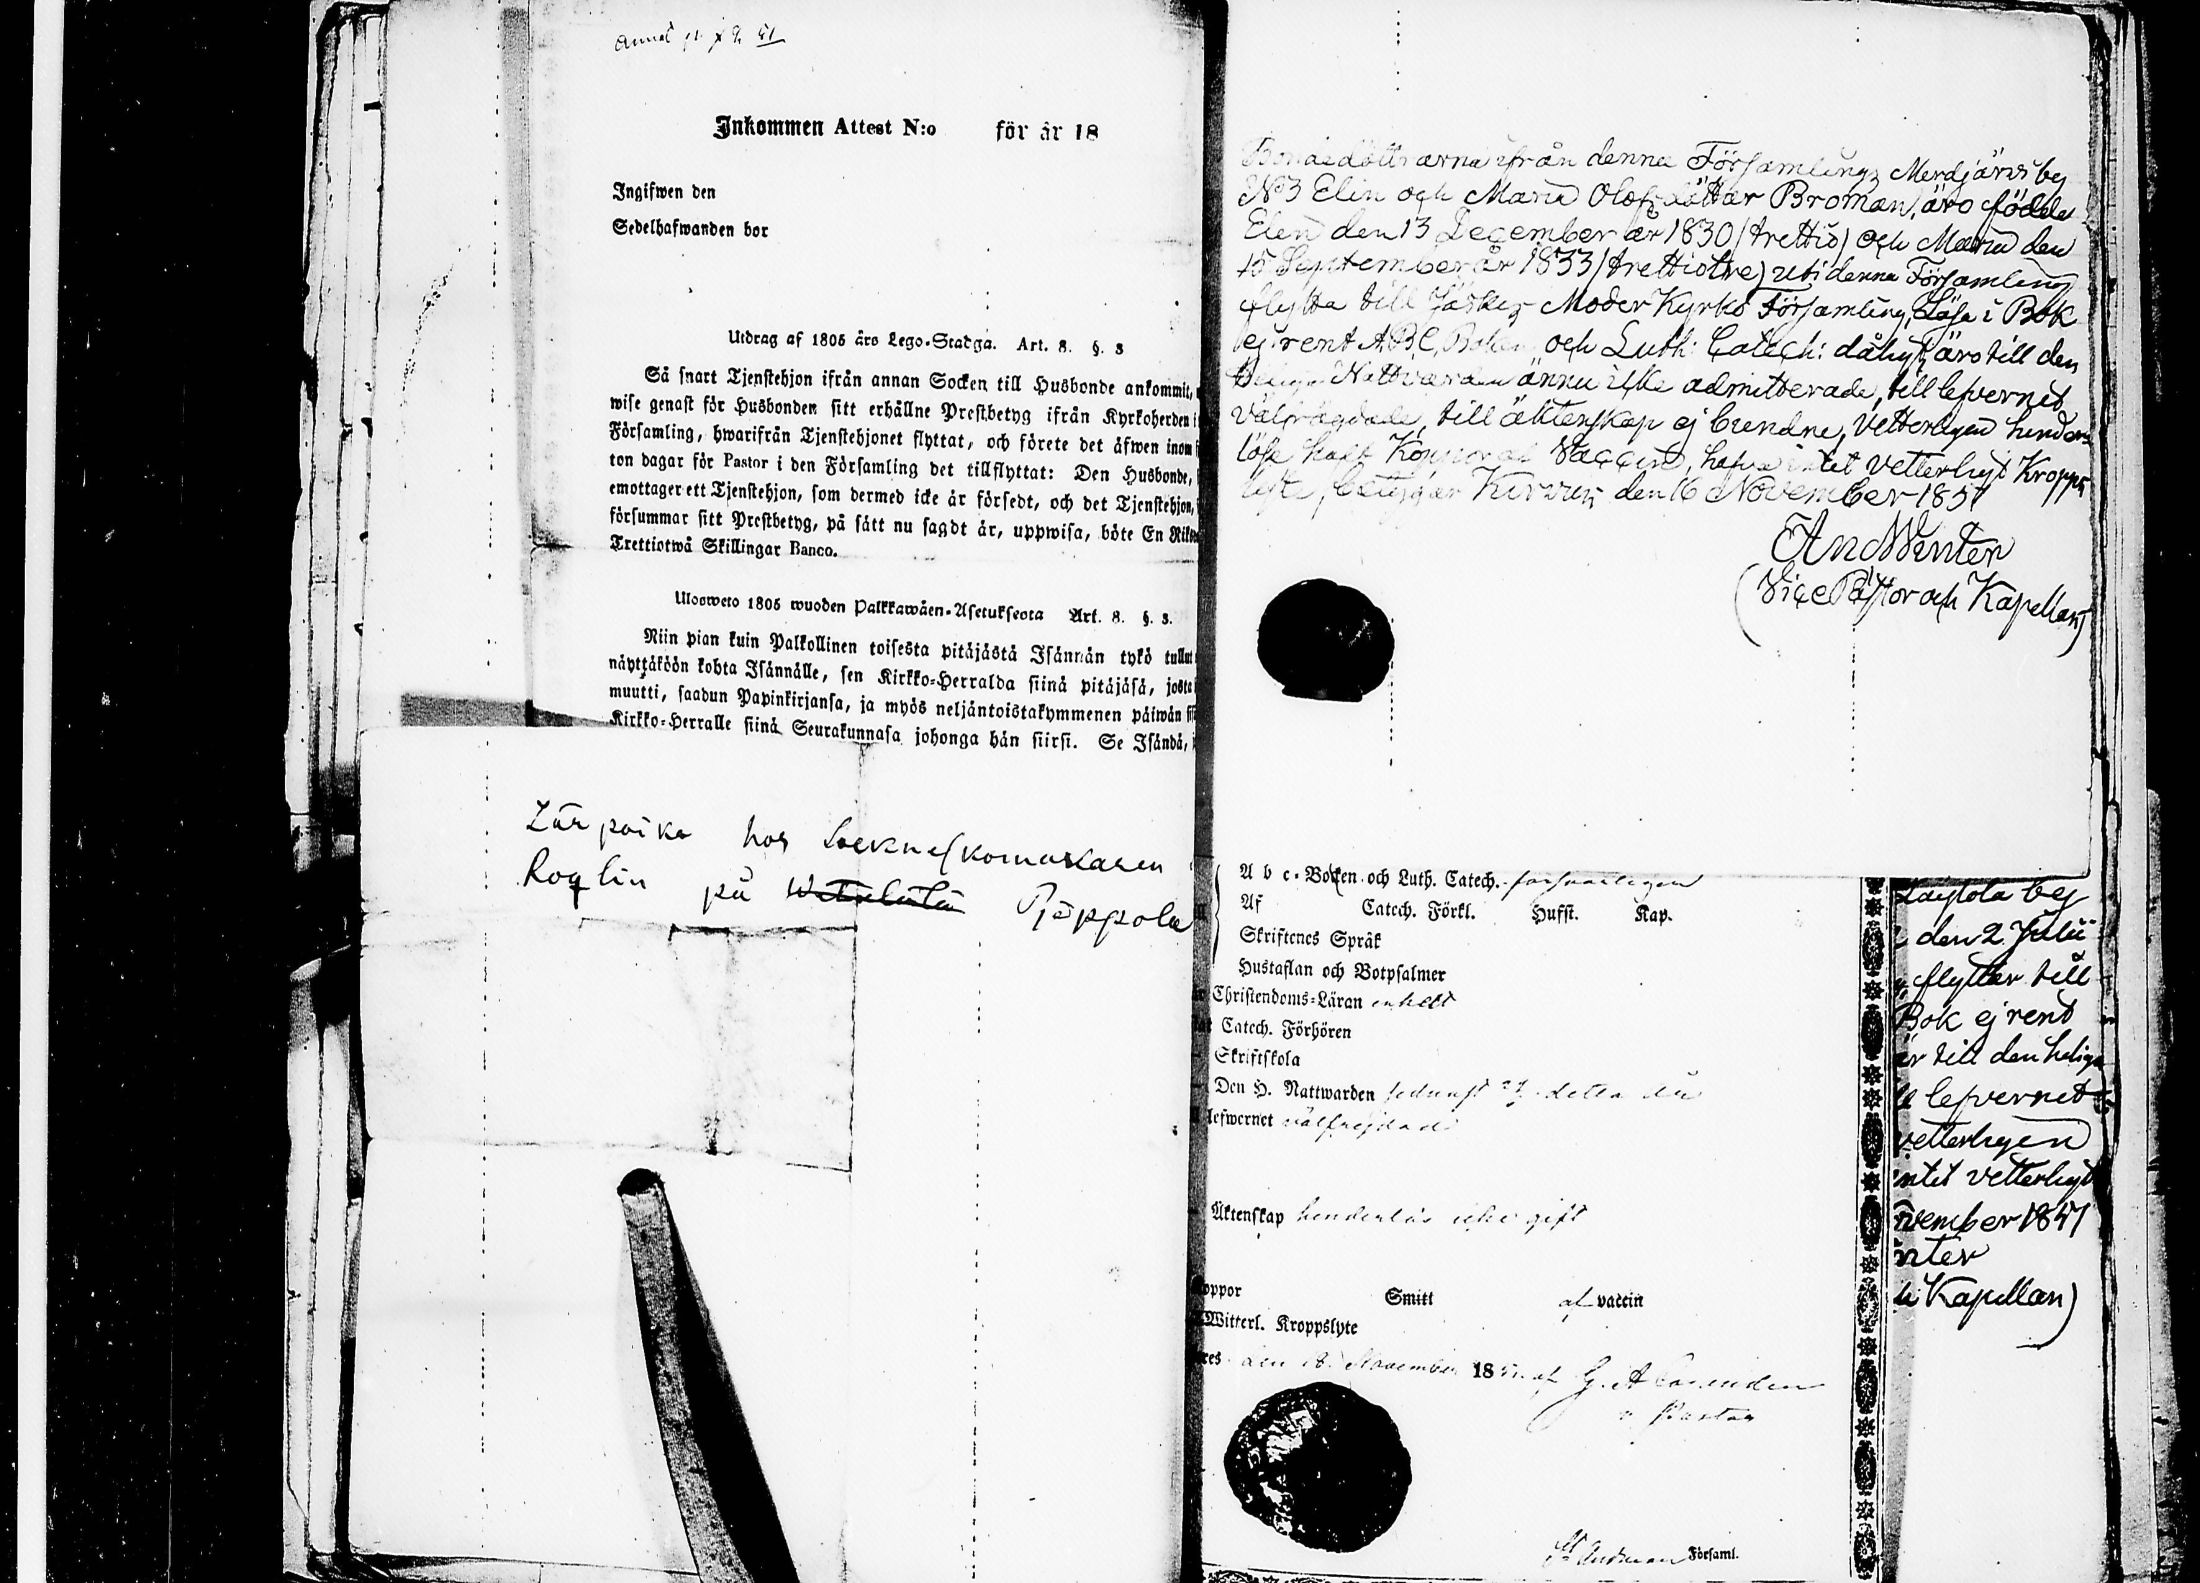 Inkommen Attest N:o för år 18
Ingifwen den
Sedelhafwanden bor
Utdrag af 1805 års Lego-Stadga. Art. 8. §. 3
Så snart Tjenstehjon ifrån annan Socken till Husbonde ankommit,
wise genast för Husbonden sitt erhållne Prestbetyg ifrån Kyrkoherden i
Församling, hwarifrån Tjenstehjonet flyttat, och förete det äfwen inom
ton dagar för Pastor i den Församling det tillflyttat: Den Husbonde,
emottager ett Tjenstehjon, som dermed icke är försedt, och det Tjenstehjon,
försummar sitt Prestbetyg, på sätt nu sagdt är, uppwisa, böte En Riks
Trettiotwå Skillingar Banco.
Ulosweto 1805 wuoden Palkkawäen-Asetuksesta Art. 8. §. 3.
Niin pian kuin Palkollinen toisesta pitäjästä Isännän tykö tullut
näyttäköön kohta Isännälle, sen Kirkko-Herralda siinä pitäjäsä, josta
muutti, saadun Papinkirjansa, ja myös neljäntoistakymmenen päiwän
Kirkko-Herralle siinä Seurakunnasa johonga hän siirsi. Se Isändä,
Lärpoike hos Sockneskomakaren
Roqlin på Pjäppola
Bondedöttrarna ifrån denna Församlings Merdjärvi by
N:o 3 Elin och Maria Olofsdöttrar Broman, äro födde
Elin den 13 December år 1830 (trettio) och Maria den
15 September år 1833 (trettiotre) uti denna Församling
flytta till Jäskis Moder Kyrko Församling, Läsa i Bok
ej rent A.B.C. Boken och Luth: Catech: dåligt, äro till den
Heliga Nattvarden ännu icke admitterade, till lefvernet
Välfrägdade, till äktenskap ej bundne, Vetterligen hinders
löse haft Koppor af Vaccin, hafva intet vetterligt Kropps
lyte, betygar Kirvus den 16 November 1851
And Winter
(Vice Pastor och Kapellan)
A b c-Boken och Luth. Catech. försvarligen
Af Catech. Förkl. Hufst. Kap.
Skriftenes Språk
Hustaflan och Botpsalmer
Christendoms-Läran enkelt
Catech. Förhören
Skriftskola
Den H. Nattwarden sednast detta år
lefwernet välfrejdad
Äktenskap hinderlös icke gift
oppor Smitt af vaccin
Witterl. Kroppslyte
res den 18 November 1851 af G. A.
v. Pastor
St Andreæ Församl.
by
den 2 Julii
flyttar till
Bok ej rent
är till den heliga
lefvernet
vetterligen
intet vetterligt
vember 1851
nter
Kapellan)